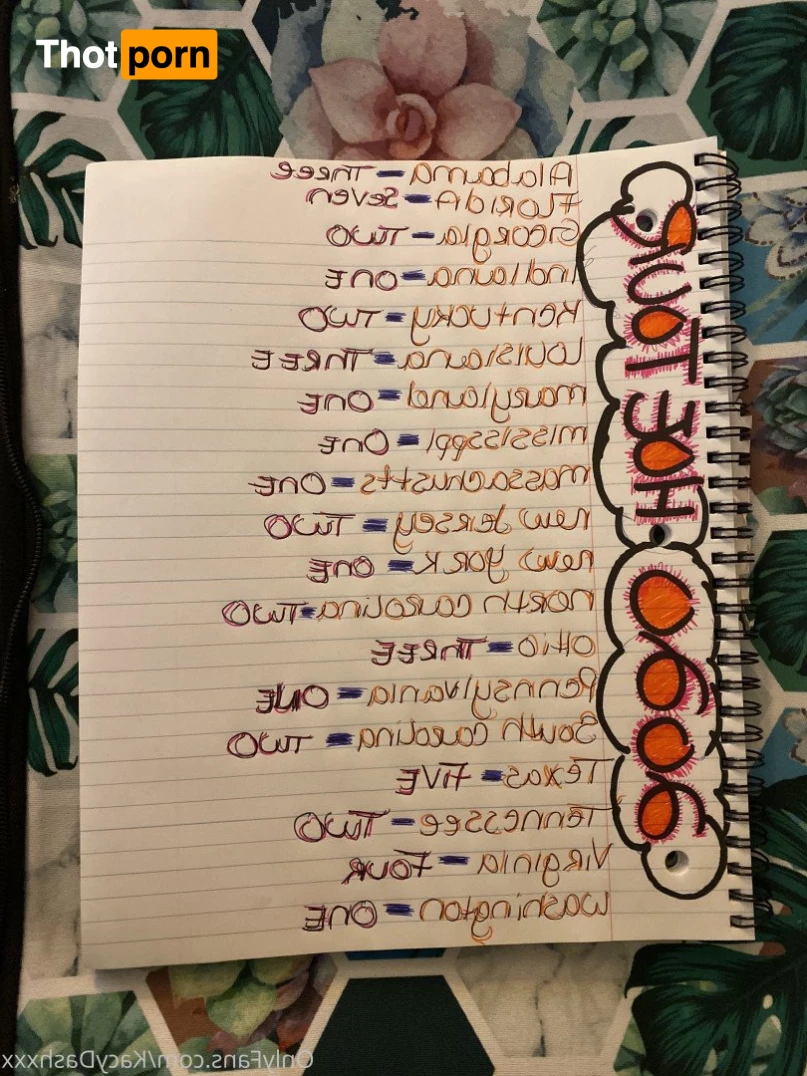 Thot porn
HOE TOUR
Alabama - Three
Florida - Seven
Georgia - Two
Indiana - One
Kentucky = Two
Louisiana = Three
Maryland = One
Mississppi = One
Massachustts = One
New Jersey = Two
New York = One
North Carolina = Two
Ohio = Three
Pennsylvania = One
South Carolina = Two
Texas = Five
Tennessee = Two
Virginia = Four
Washington = One
OnlyFans.com/KacyDashxxx